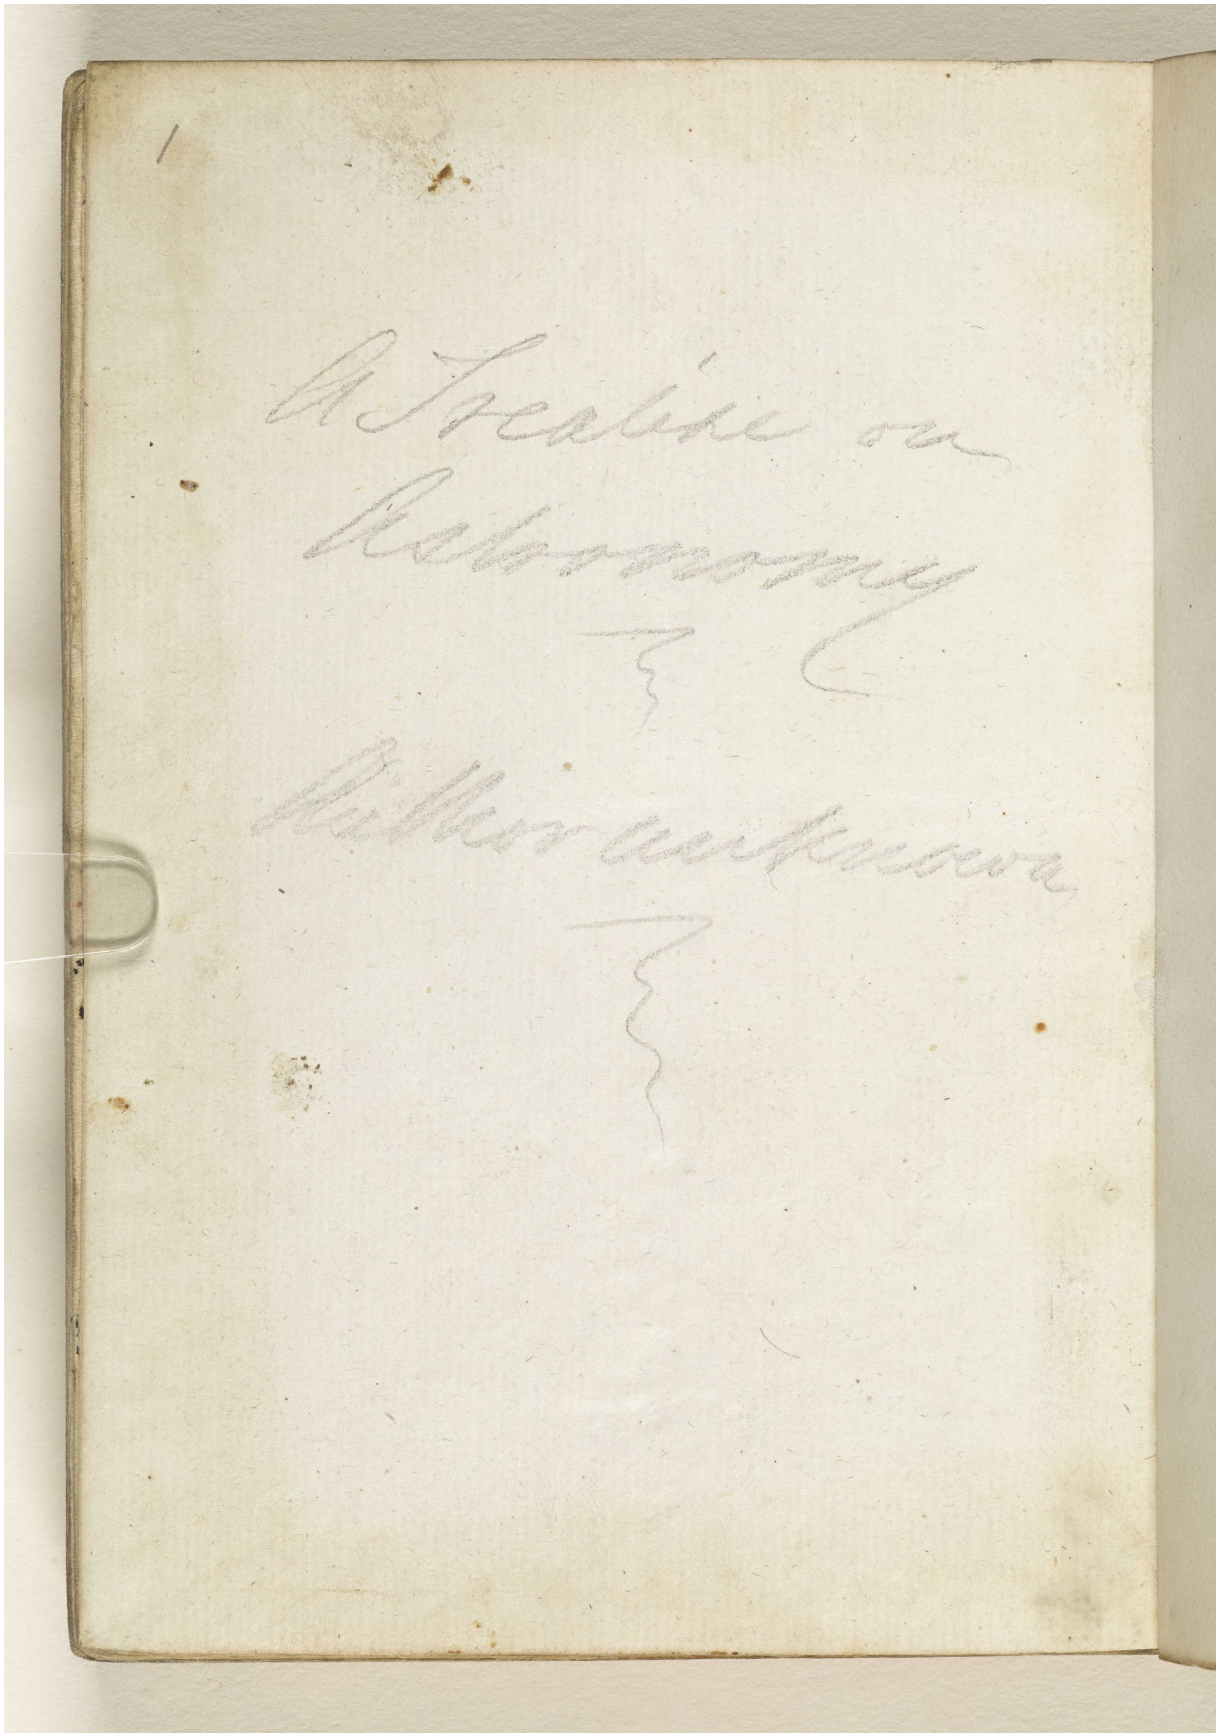 1
A Treatise on
Astronomy
Author unknown